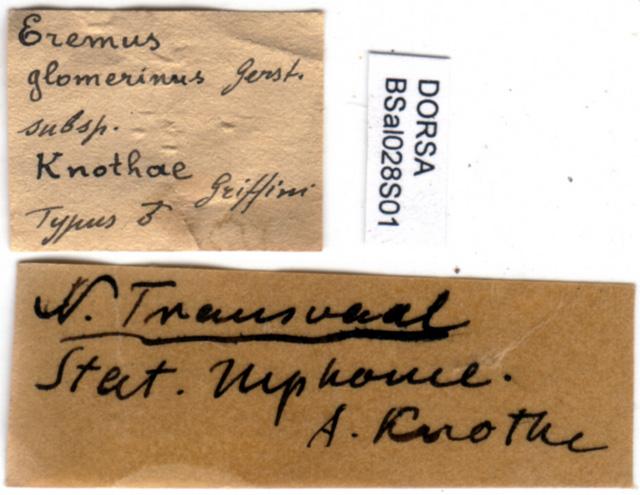 Eremus
glomerinus Gerst.
subsp.
Knothae
Griffini
Typus ♂
DORSA
BSal028S01
N. Transvaal
Stat. Mphome.
A. Knothe